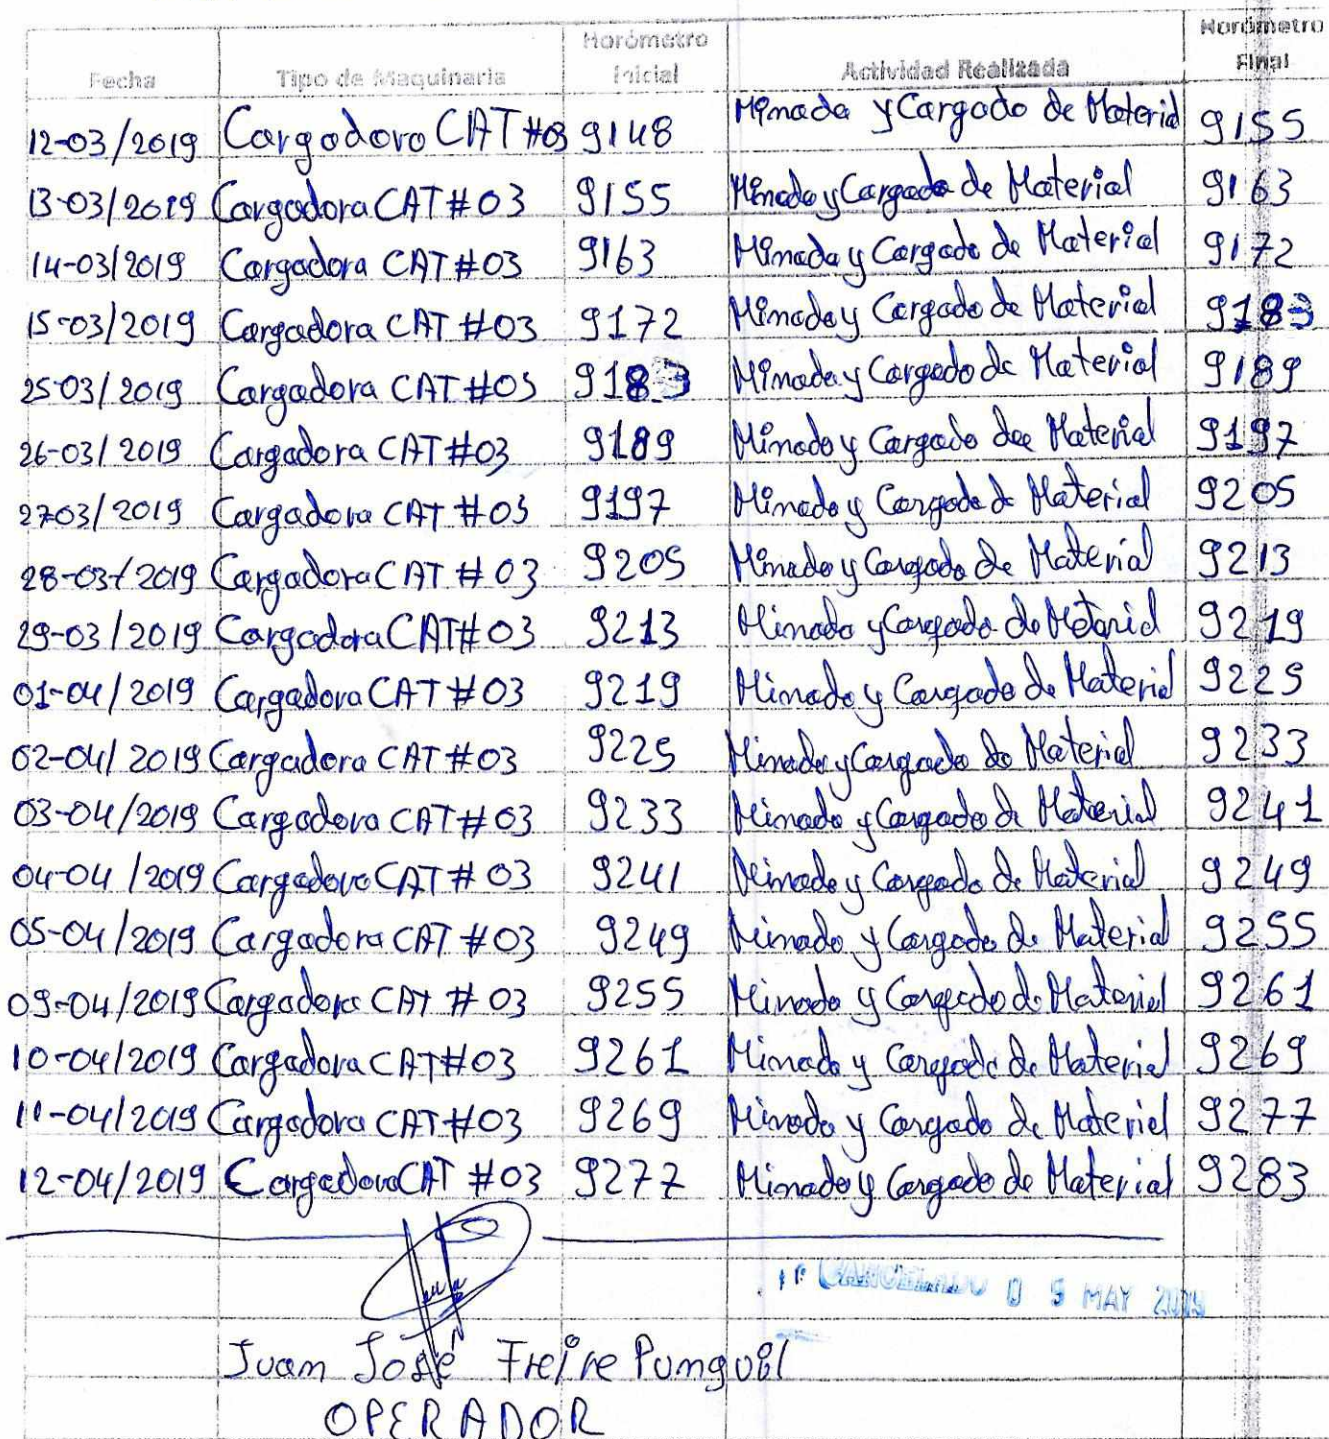 Fecha Tipo de Maquinaria Horómetro Inicial Actividad Realizada Horómetro Final
12-03/2019 Cargadora CAT #03 9148 Minado y Cargado de Material 9155
13-03/2019 Cargadora CAT #03 9155 Minado y Cargado de Material 9163
14-03/2019 Cargadora CAT #03 9163 Minado y Cargado de Material 9172
15-03/2019 Cargadora CAT #03 9172 Minado y Cargado de Material 9183
25-03/2019 Cargadora CAT #03 9183 Minado y Cargado de Material 9189
26-03/2019 Cargadora CAT #03 9189 Minado y Cargado dee Material 9197
27-03/2019 Cargadora CAT #03 9197 Minado y Cargado de Material 9205
28-03/2019 Cargadora CAT #03 9205 Minado y Cargado de Material 9213
29-03/2019 Cargadora CAT #03 9213 Minado y Cargado de Material 9219
01-04/2019 Cargadora CAT #03 9219 Minado y Cargado de Material 9225
02-04/2019 Cargadora CAT #03 9225 Minado y Cargado de Material 9233
03-04/2019 Cargadora CAT #03 9233 Minado y Cargado de Material 9241
04-04/2019 Cargadora CAT #03 9241 Minado y Cargado de Material 9249
05-04/2019 Cargadora CAT #03 9249 Minado y Cargado de Material 9255
09-04/2019 Cargadora CAT #03 9255 Minado y Cargado de Material 9261
10-04/2019 Cargadora CAT #03 9261 Minado y Cargado de Material 9269
11-04/2019 Cargadora CAT #03 9269 Minado y Cargado de Material 9277
12-04/2019 Cargadora CAT #03 9277 Minado y Cargado de Material 9283
CANCELADO 0 5 MAY 2019
Juan José Freire Punguil
OPERADOR